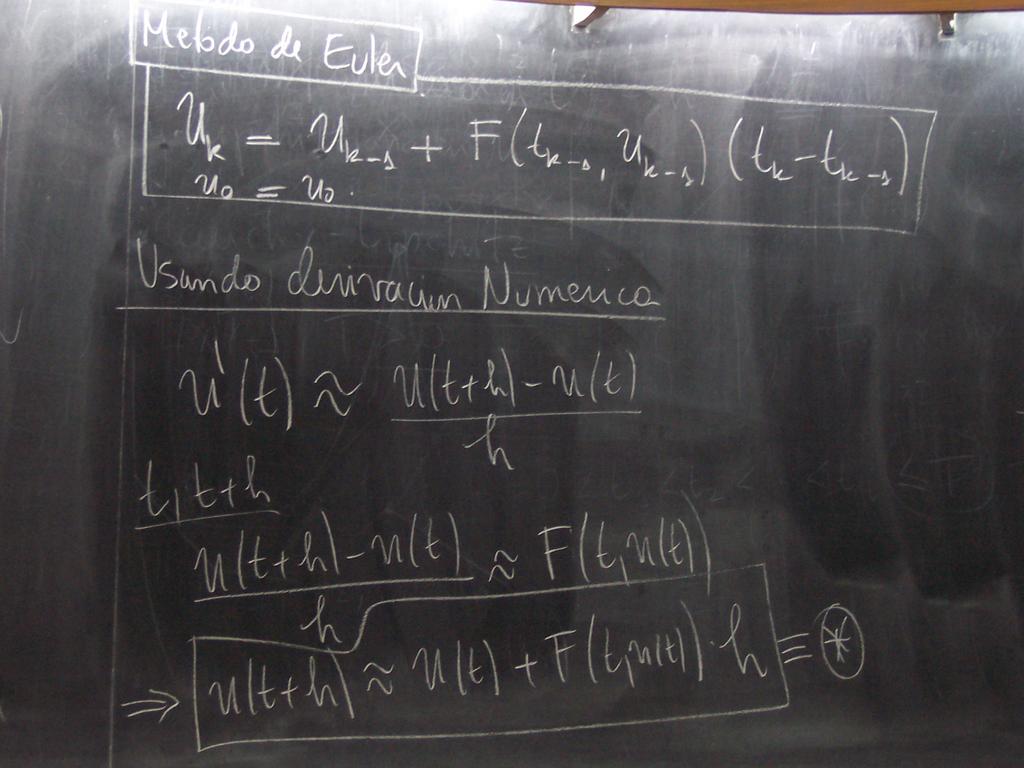 Metodo de Euler
U_k = U_{k-1} + F(t_{k-1}, U_{k-1}) (t_k - t_{k-1})
u_0 = u_0.
Usando derivacion Numerica
u'(t) ≈ (u(t+h) - u(t)) / h
t, t+h
(u(t+h) - u(t)) / h ≈ F(t, u(t))
⇒ u(t+h) ≈ u(t) + F(t, u(t)) · h ≡ ⊛